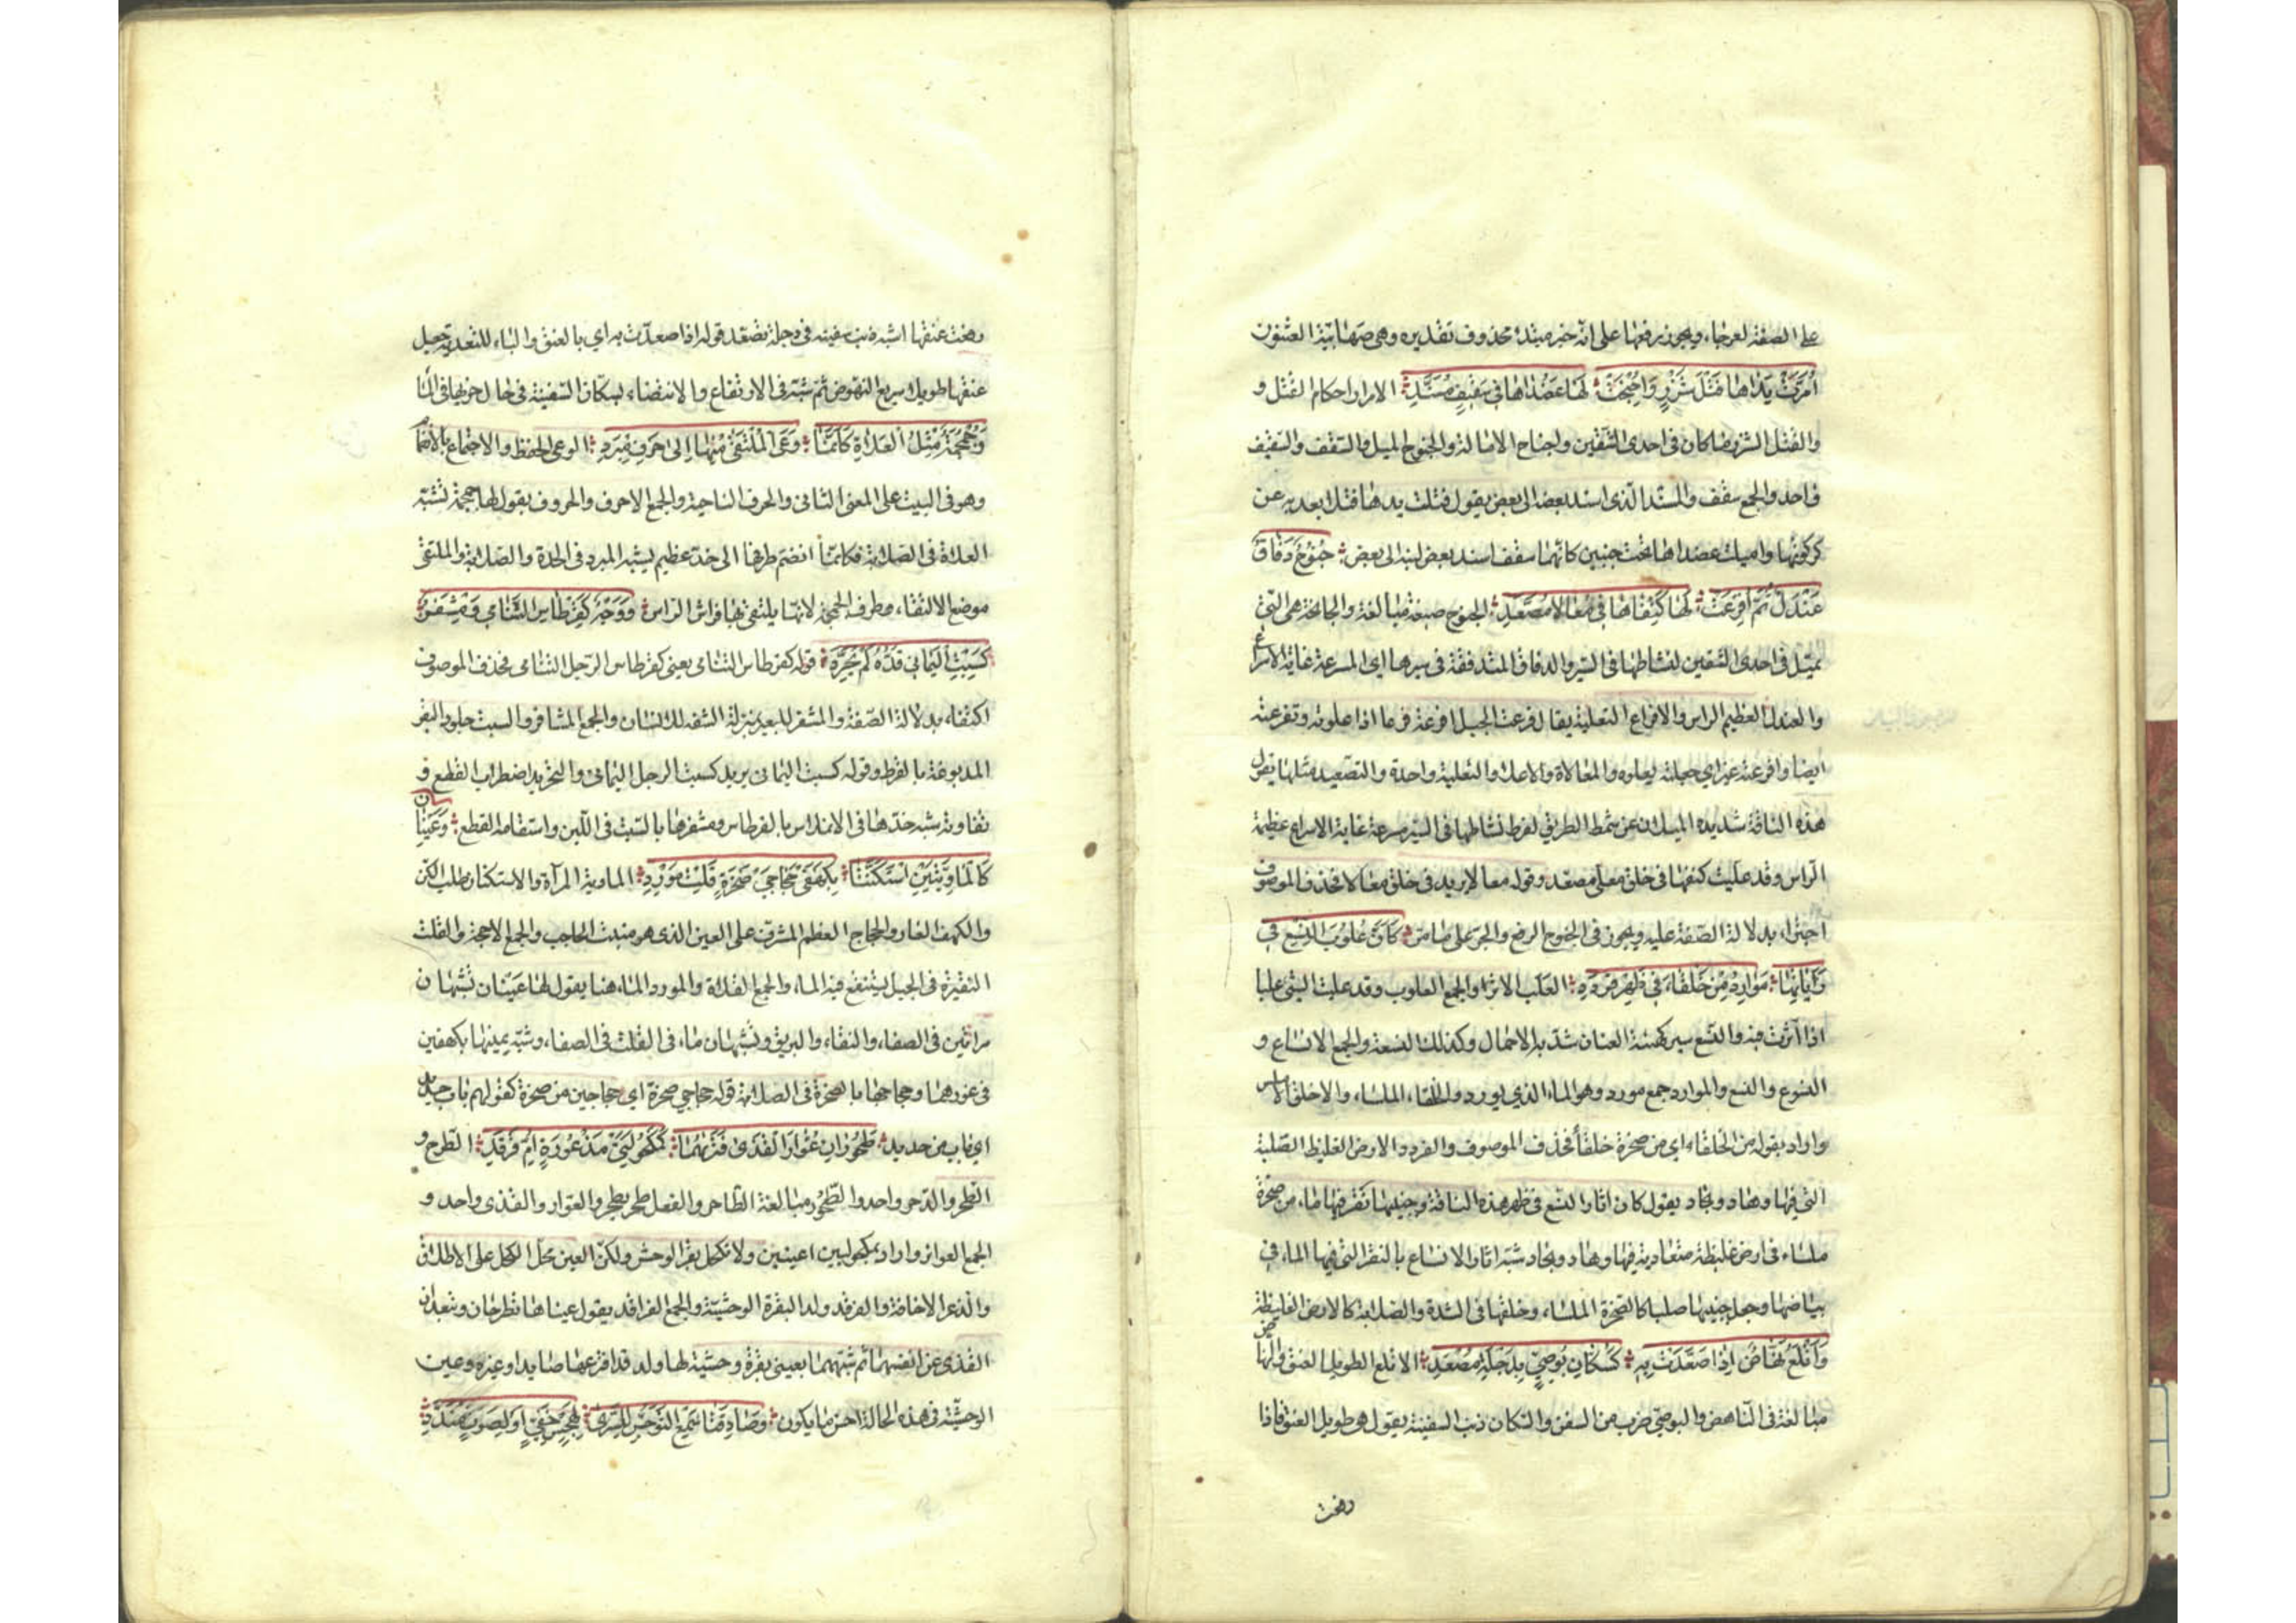 على الصفة لعرجاء ويجوز رفعها على انه خبر مبتدء محذوف تقديره وهى صهابية العثنون
اُمِرَّتْ يَدَاهَا فَتْلَ شَزْرٍ وَاُجْنِحَتْ لَهَا عَضُدَاهَا فِي سَقِيفٍ مُسَنَّدِ الامرار احكام الفتل و
والفتل الشزر ما كان فى احدى الشقين واجناح الامالة والجنوح الميل والسقف والسقيف
واحد والجمع سقف والمسند الذى اسند بعضه الى بعض يقول فتلت يداها فتلا بعد به عن
كركرتها واميلت عضداها تحت جنبين كانهما سقف اسند بعض لبنه الى بعض جَنُوحٌ دَفَاقٌ
عَنْدَلٌ ثُمَّ اُفْرِعَتْ لَهَا كَتِفَاهَا فِي مُعَالًا مُصَعَّدِ الجنوح صيغة مبالغة والجانحة هى التى
تميل فى احدى الشقين لنشاطها فى السير والدفاق المتدفقة فى سيرها اى المسرعة غاية الاسراع
والعندل العظيم الراس والافراع التعلية يقال فرعت الجبل افرعه فرعا اذا علوته وتفرعته
ايضا وافرعته غيرى اي جعلته يعلوه والمعالاة والاعلاء والتعلية واحدة والتصعيد مثلها يقول
هذه الناقة شديدة الميلان عن سمط الطريق لفرط نشاطها فى السير مسرعة غاية الاسراع عظيمة
الراس وقد عليت كتفها فى خلق معلى مصعد وقوله معالا يريد فى خلق معالا فحذف الموصوف
اجتزاء بدلالة الصفة عليه ويجوز فى الجنوح الرفع والجر على ما مر كَاَنَّ عُلُوبَ النِّسْعِ فِي
دَاَيَاتِهَا مَوَارِدُ مِنْ خَلْقَاءَ فِي ظَهْرِ قَرْدَدِ العلب الاثر والجمع العلوب وقد علبت الشى علبا
اذا اثرت فيه والنسع سير كهيئة العنان شد به الاحمال وكذلك النسعة والجمع الانساع و
النسوع والنسع والموارد جمع مورد وهو الماء الذي يورد والخلقاء الملساء والاخلق الاملس
واراد بقوله من خلقاء اي من صخرة خلقاء فحذف الموصوف والقردد الارض الغليظ الصلبة
التى فيها وهاد ونجاد يقول كان اثار النسع فى ظهر هذه الناقة وجنبيها نقر فيها ماء من صخرة
ملساء فى ارض غليظة متعادية فيها وهاد ونجاد شبه اثار الانساع بالنقر التى فيها الماء فى
بياضها وجعل جنبيها صلبا كالصخرة الملساء وخلقها فى الشدة والصلابة كالارض الغليظة
وَاَتْلَعُ نَهَّاضٌ اِذَا صَعَّدَتْ بِهِ كَسُكَّانِ بُوصِيٍّ بِدَجْلَةَ مُصْعِدِ الاتلع الطويل العنق والنهاض
مبالغة فى الناهض والبوصى ضرب من السفن والسكان ذنب السفينة يقول هو طويل العنق فاذا
رفعت
رفعت عنقها اشبه ذنب سفينة فى دجلة تصعد قوله اذا صعدت به اي بالعنق والباء للتعدية جعل
عنقها طويلا سريع النهوض ثم شبه فى الارتفاع والانتصاب بسكان السفينة فى حال جريها فى الماء
وَجُمْجُمَةٌ مِثْلُ الْعَلَاةِ كَاَنَّمَا وَعَى الْمُلْتَقَى مِنْهَا اِلَى حَرْفِ مِبْرَدِ الوعى الحفظ والاجتماع والانضمام
وهو فى البيت على المعنى الثانى والحرف الناحية والجمع الاحرف والحروف يقول لها جمجمة تشبه
العلاة فى الصلابة فكانما انضم طرفها الى حد عظيم يشبه المبرد فى الحدة والصلابة والملتقى
موضع الالتقاء وطرف الجمجمة لانها يلتقى بها فراش الراس وَوَجْهٌ كَقِرْطَاسِ الشَّآمِي وَمِشْفَرٌ
كَسِبْتِ الْيَمَانِي قَدُّهُ لَمْ يُجَرَّدِ قوله كقرطاس الشامى يعنى كقرطاس الرجل الشامى فحذف الموصوف
اكتفاء بدلالة الصفة والمشفر للبعير بمنزلة الشفة للانسان والجمع المشافر والسبت جلود البقر
المدبوغة بالقرظ وقوله كسبت اليمانى يريد كسبت الرجل اليمانى والتحريد اضطراب القطع و
تفاوته شبه خدها فى الانملاس بالقرطاس ومشفرها بالسبت فى اللين واستقامة القطع وَعَيْنَانِ
كَالْمَاوِيَّتَيْنِ اسْتَكَنَّتَا بِكَهْفَيْ حِجَاجَيْ صَخْرَةٍ قَلْتِ مَوْرِدِ الماوية المرآة والاستكنان طلب الكن
والكهف الغار والحجاج العظم المشرف على العين الذى هو منبت الحاجب والجمع الاحجة والقلت
النقرة فى الجبل يستنقع فيه الماء والجمع القلات والمورد الماء هنا يقول لها عينان تشبهان
مراتين فى الصفاء والنقاء والبريق وتشبهان ماء فى القلت فى الصفاء وشبه عينيها بكهفين
فى غورهما وحجاجها بالصخرة فى الصلابة قوله حجاجي صخرة اي حجاجين من صخرة كقولهم باب حديد
اي باب من حديد طَحُورَانِ عُوَّارَ الْقَذَى فَتَرَاهُمَا كَمَكْحُولَتَيْ مَذْعُورَةٍ اُمِّ فَرْقَدِ الطرح و
الطحر والدحر واحد والطحور مبالغة الطاحر والفعل طحر يطحر والعوار والقذى واحد و
الجمع العواوير واراد بمكحولتين عينين ولا تكحل بقر الوحش ولكن العين محل الكحل على الاطلاق
والذعر الاخافة والفرقد ولد البقرة الوحشية والجمع الفراقد يقول عيناها تطرحان وتبعدان
القذى عن انفسهما ثم شبههما بعينى بقرة وحشية لها ولد قد افزعها صايد او غيره وعين
الوحشية فى هذه الحالة احسن ما يكون وَصَادِقَتَا سَمْعِ التَّوَجُّسِ لِلسُّرَى لِهَجْسٍ خَفِيٍّ اَوْ لِصَوْتٍ مُنَدَّدِ